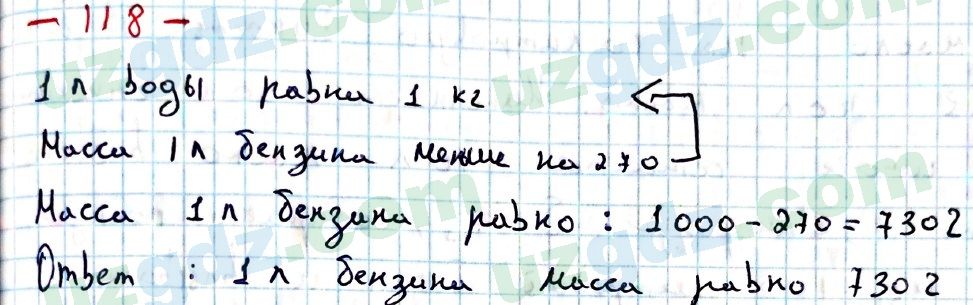 - 118 -
1 л воды равна 1 кг
Масса 1л бензина меньше на 270
Масса 1 л бензина равно : 1000 - 270 = 730г
Ответ : 1 л бензина масса равно 730г
uzgdz.com